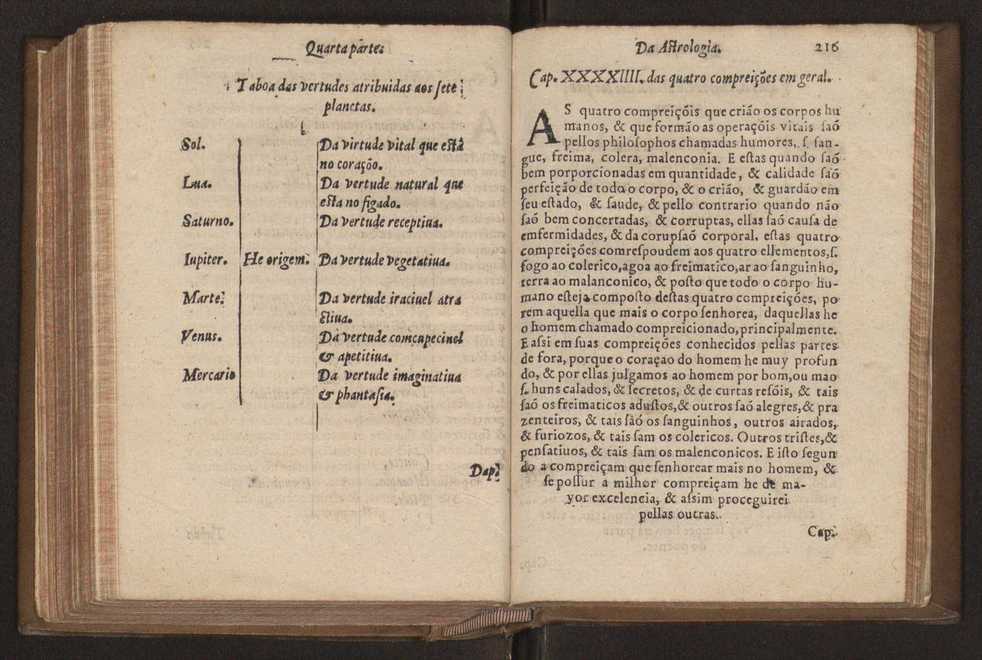 Quarta parte.
Taboa das vertudes atribuidas aos sete
planetas.
Sol.
Da virtude vital que està
no coração.
Lua.
Da vertude natural que
esta no figado.
Saturno.
Da vertude receptiua.
Iupiter. He origem. Da vertude vegetatiua.
Marte.
Da vertude iraciuel atra
ctiua.
Venus.
Da vertude comcupecinel
& apetitiua.
Mercario
Da vertude imaginatiua
& phantasia.
Dap.
Da Astrologia. 216
Cap. XXXXIIII. das quatro compreições em geral.
AS quatro compreiçõis que crião os corpos hu
manos, & que formão as operaçõis vitais saõ
pellos philosophos chamadas humores, s. san-
gue, freima, colera, malenconia. E estas quando saõ
bem porporcionadas em quantidade, & calidade saõ
perfeição de todo o corpo, & o crião, & guardão em
seu estado, & saude, & pello contrario quando não
saõ bem concertadas, & corruptas, ellas saõ causa de
enfermidades, & da corupsaõ corporal. estas quatro
compreições comrespoudem aos quatro ellementos, s.
fogo ao colerico, agoa ao freimatico, ar ao sanguinho,
terra ao malanconico, & posto que todo o corpo hu-
mano esteja composto destas quatro compreições, po
rem aquella que mais o corpo senhorea, daquellas he
o homem chamado compreicionado, principalmente.
E assi em suas compreições conhecidos pellas partes
de fora, porque o coraçao do homem he muy profun
do, & por ellas julgamos ao homem por bom, ou mao
s. huns calados, & secretos, & de curtas resõis, & tais
saõ os freimaticos adustos, & outros saõ alegres, & pra
zenteiros, & tais saõ os sanguinhos, outros airados,
& furiozos, & tais sam os colericos. Outros tristes, &
pensatiuos, & tais sam os malenconicos. E isto segun
do a compreiçam que senhorear mais no homem, &
se possur a milhor compreiçam he de ma-
yor excelencia, & assim proceguirei
pellas outras.
Cap.